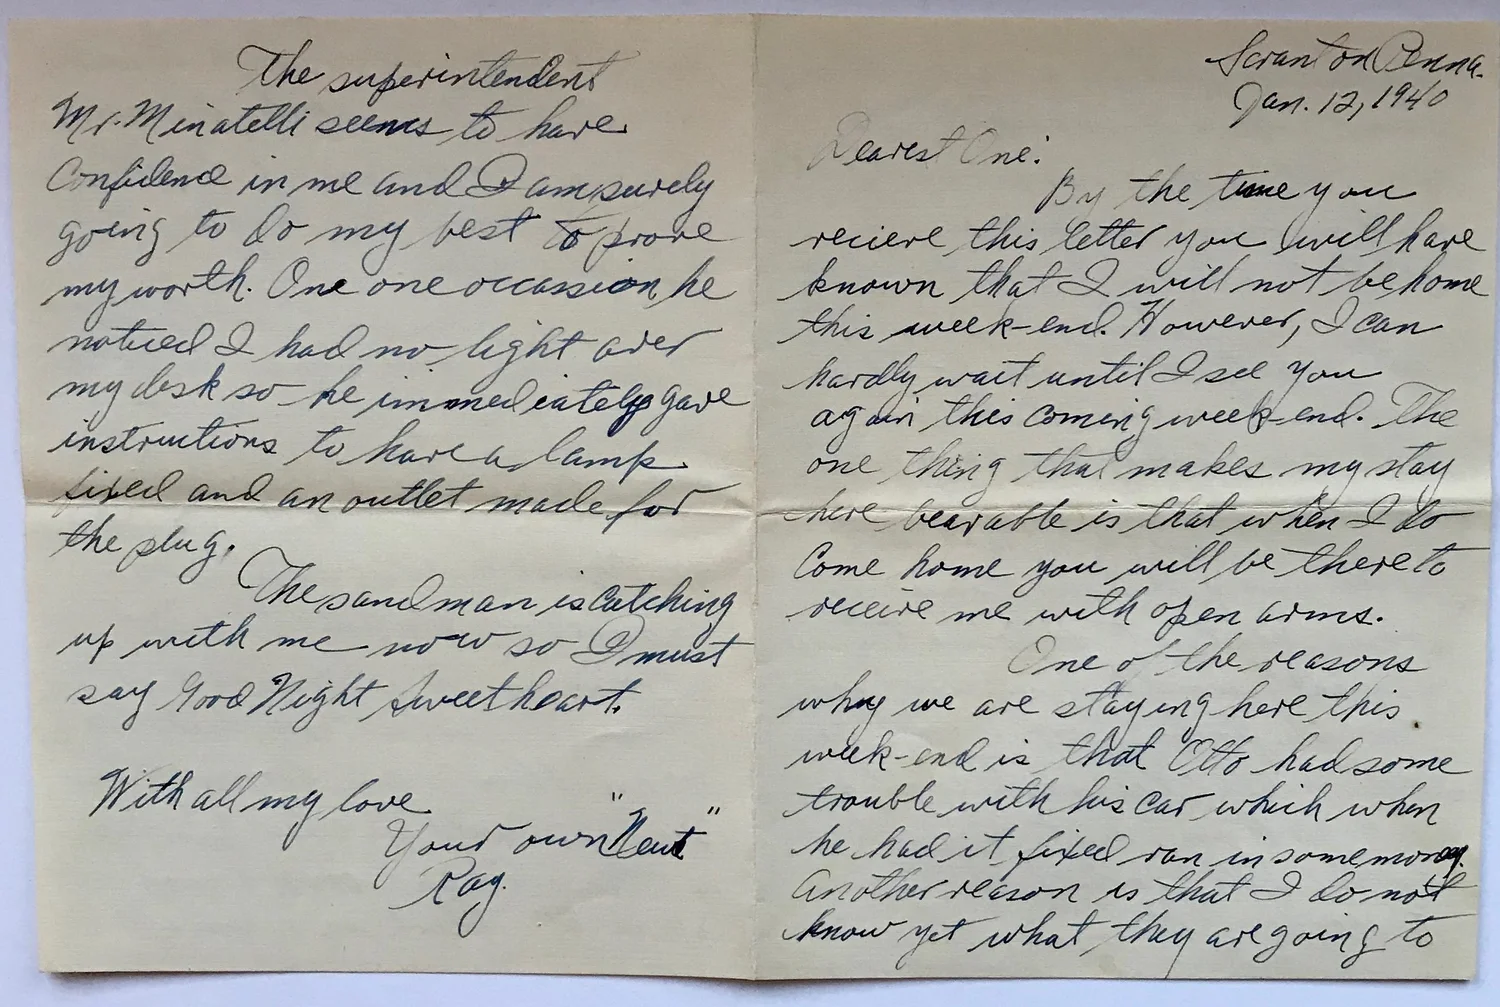 Scranton Penna.
Jan. 12, 1940
Dearest One:
By the time you
recieve this letter you will have
known that I will not be home
this week-end. However, I can
hardly wait until I see you
again this coming week-end. The
one thing that makes my stay
here bearable is that when I do
come home you will be there to
receive me with open arms.
One of the reasons
why we are staying here this
week-end is that Otto had some
trouble with his car which when
he had it fixed ran in some money.
Another reason is that I do not
know yet what they are going to
The superintendent
Mr. Minatelli seems to have
confidence in me and I am surely
going to do my best to prove
my worth. One one occassion, he
noticed I had no light over
my desk so he immediately gave
instructions to have a lamp
fixed and an outlet made for
the plug.
The sandman is catching
up with me now so I must
say Good Night Sweetheart.
With all my love
Your own
Ray.